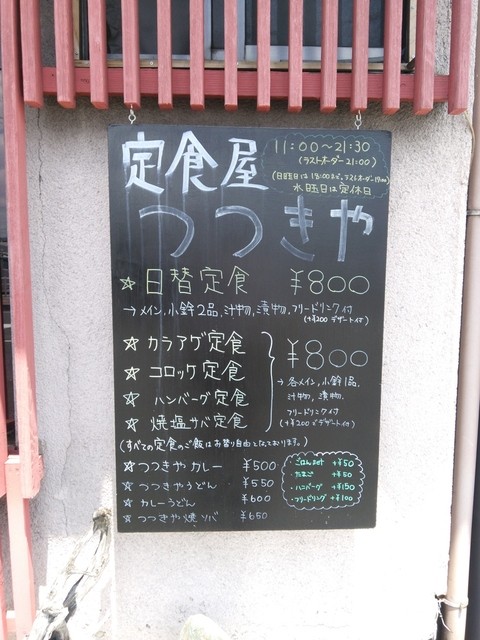 定食屋
つつきや
11:00～21:30
(ラストオーダー 21:00)
(日曜日は18:00まで。ラストオーダー
水曜日は定休日
☆日替定食 ¥800
→メイン、小鉢2品、汁物、漬物、フリードリンク付
(+¥200 デザート付)
☆カラアゲ定食
☆コロッケ定食
☆ハンバーグ定食
☆焼塩サバ定食
¥800
→各メイン、小鉢1品、
汁物、漬物、
フリードリンク付
(+¥200ドデザート付)
(すべての定食のご飯はお替り自由となっております。)
☆つつきやカレー ¥500
☆つつきやうどん ¥550
☆カレーうどん ¥600
☆つつきや焼ソバ ¥650
・ごはん +¥50
・たまご +¥50
・ハンバーグ +¥150
・フリードリンク +¥100